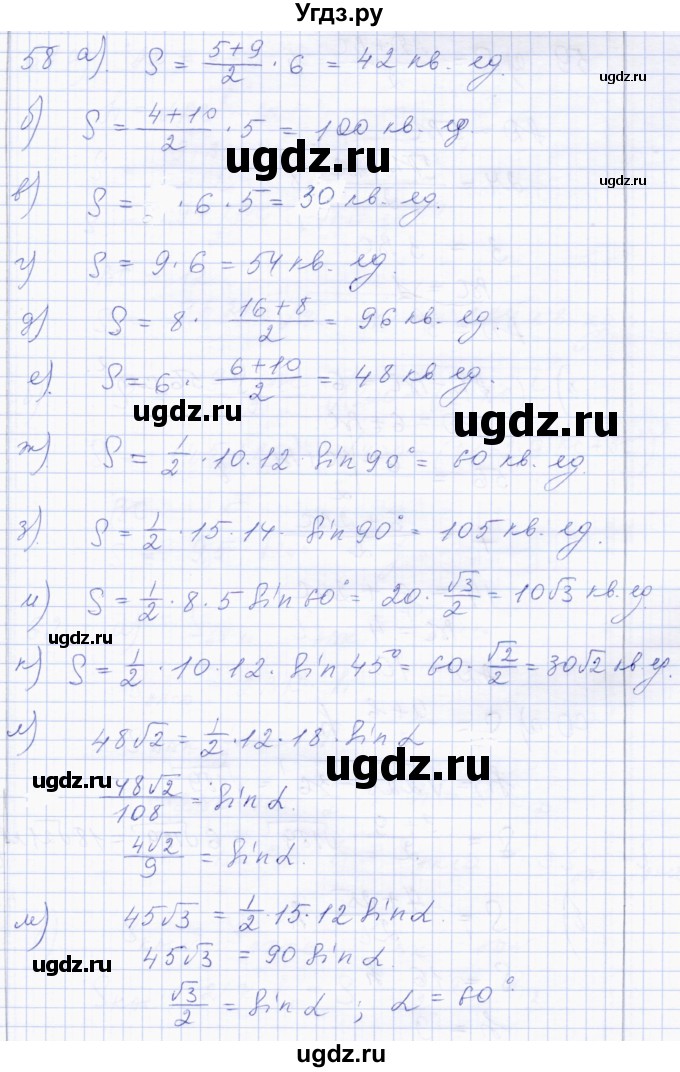 Угдз.ру
58 а). S = (5+9)/2 · 6 = 42 кв. ед.
ugdz.ru
б) S = (4+10)/2 · 5 = 100 кв. ед
ugdz.ru
ugdz.ru
в) S = · 6 · 5 = 30 кв. ед.
г) S = 9 · 6 = 54 кв. ед.
ugdz.ru
д) S = 8 · (16+8)/2 = 96 кв. ед.
е) S = 6 · (6+10)/2 = 48 кв ед.
ugdz.ru
ugdz.ru
ж) S = 1/2 · 10 · 12 · Sin 90° = 60 кв. ед.
з) S = 1/2 · 15 · 14 · Sin 90° = 105 кв. ед.
и) S = 1/2 · 8 · 5 Sin 60° = 20 · √3/2 = 10√3 кв. ед
ugdz.ru
к) S = 1/2 · 10 · 12 · Sin 45° = 60 · √2/2 = 30√2 кв ед.
л) 48√2 = 1/2 · 12 · 18 · Sin α
ugdz.ru
ugdz.ru
48√2/108 = Sin α.
4√2/9 = Sin α.
м) 45√3 = 1/2 · 15 · 12 Sin α.
45√3 = 90 Sin α.
ugdz.ru
√3/2 = Sin α ; α = 60°
ugdz.ru